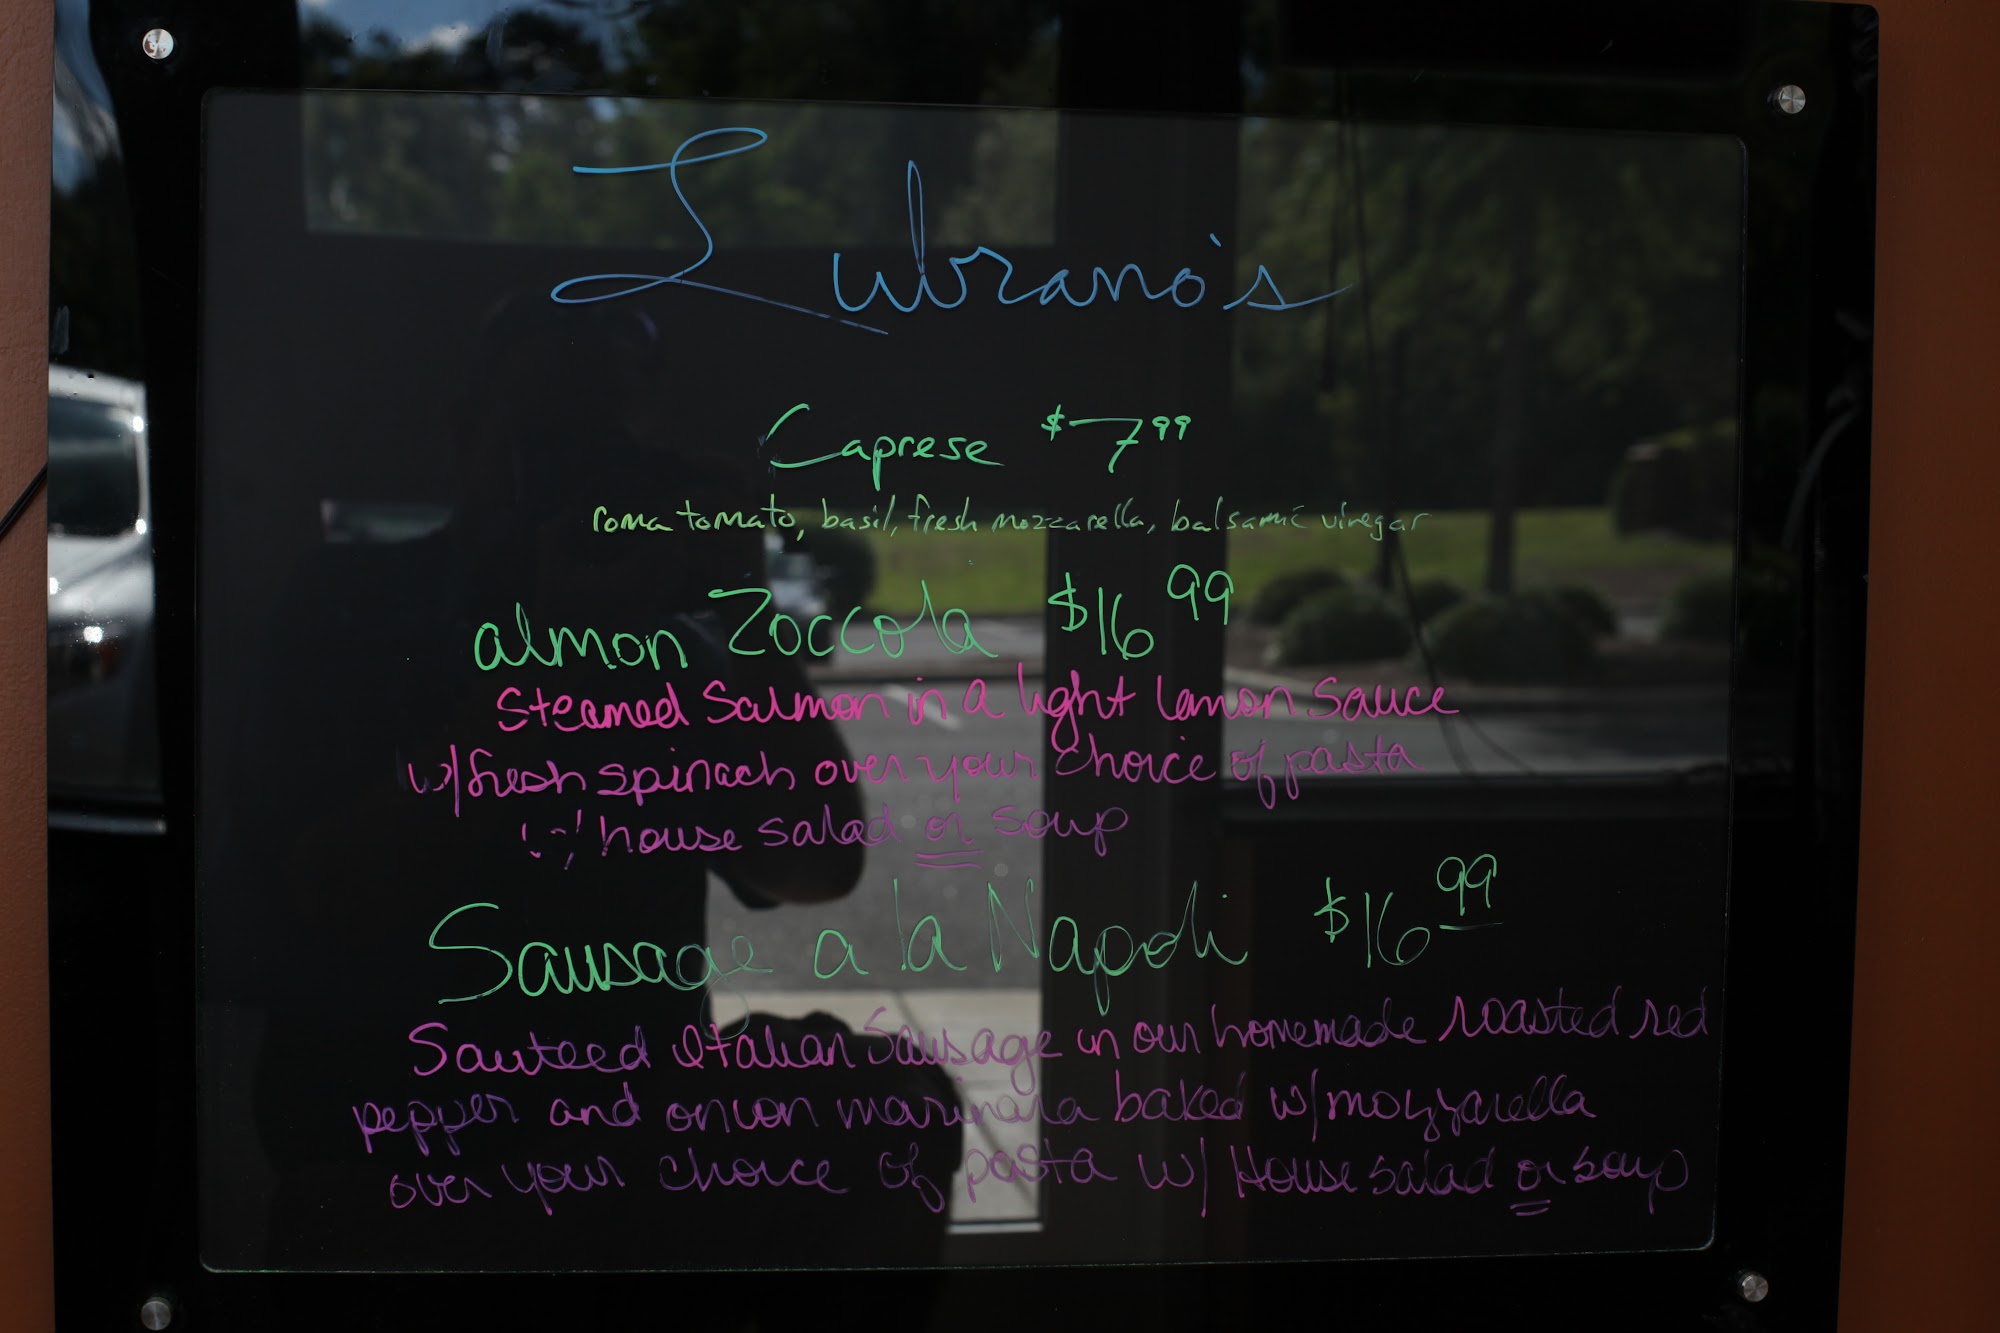 Lubrano's
Caprese $7.99
roma tomato, basil, fresh mozzarella, balsamic vinegar
almon Zoccola $16 99
Steamed Salmon in a light lemon sauce
w/fresh spinach over your choice of pasta
w/ house salad or soup
Sausage a la Napoli $16 99
Sauteed Italian Sausage in our homemade roasted red
pepper and onion marinara baked w/mozzarella
over your choice of pasta w/ House salad or soup